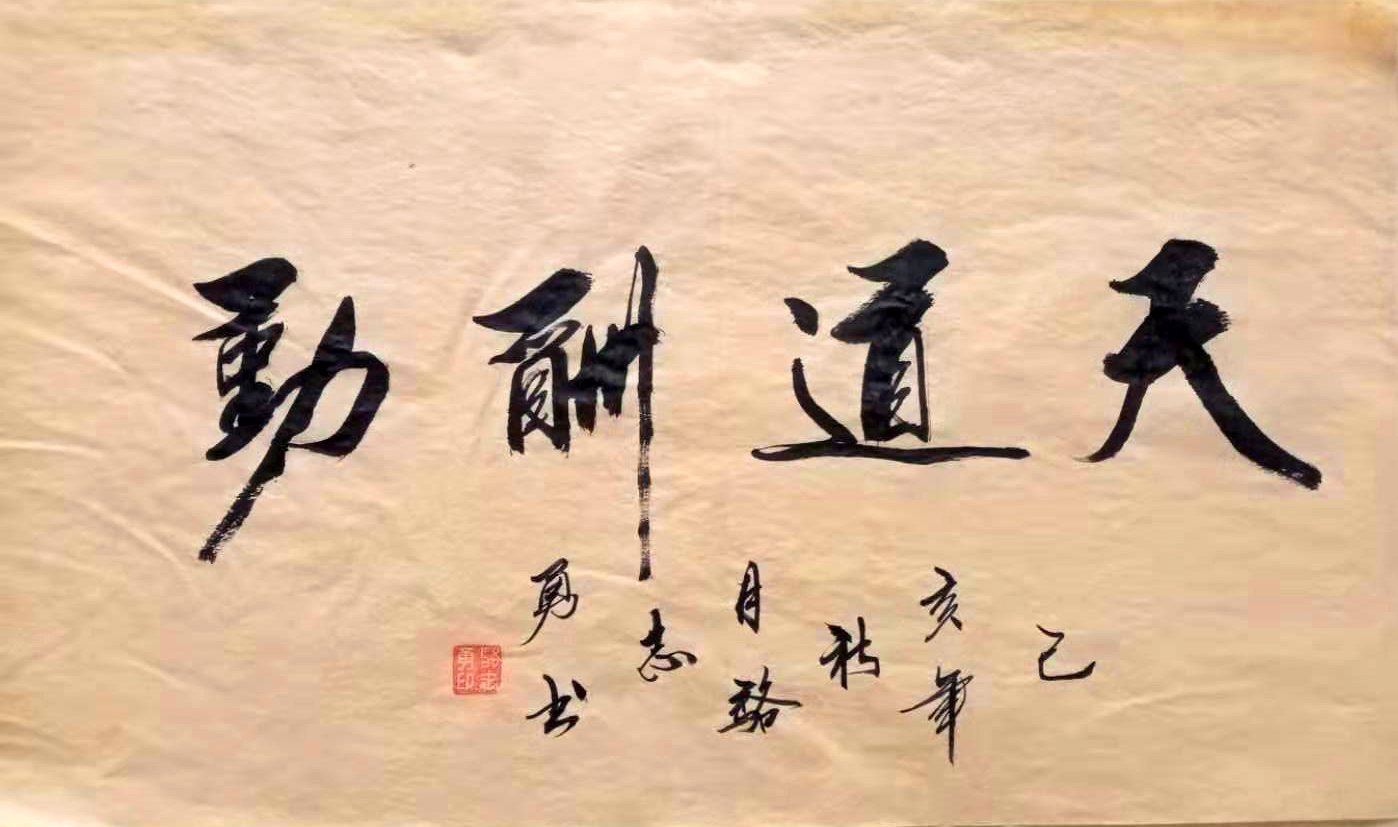 天道酬勤
己亥年秋月骆志勇书
骆志勇印